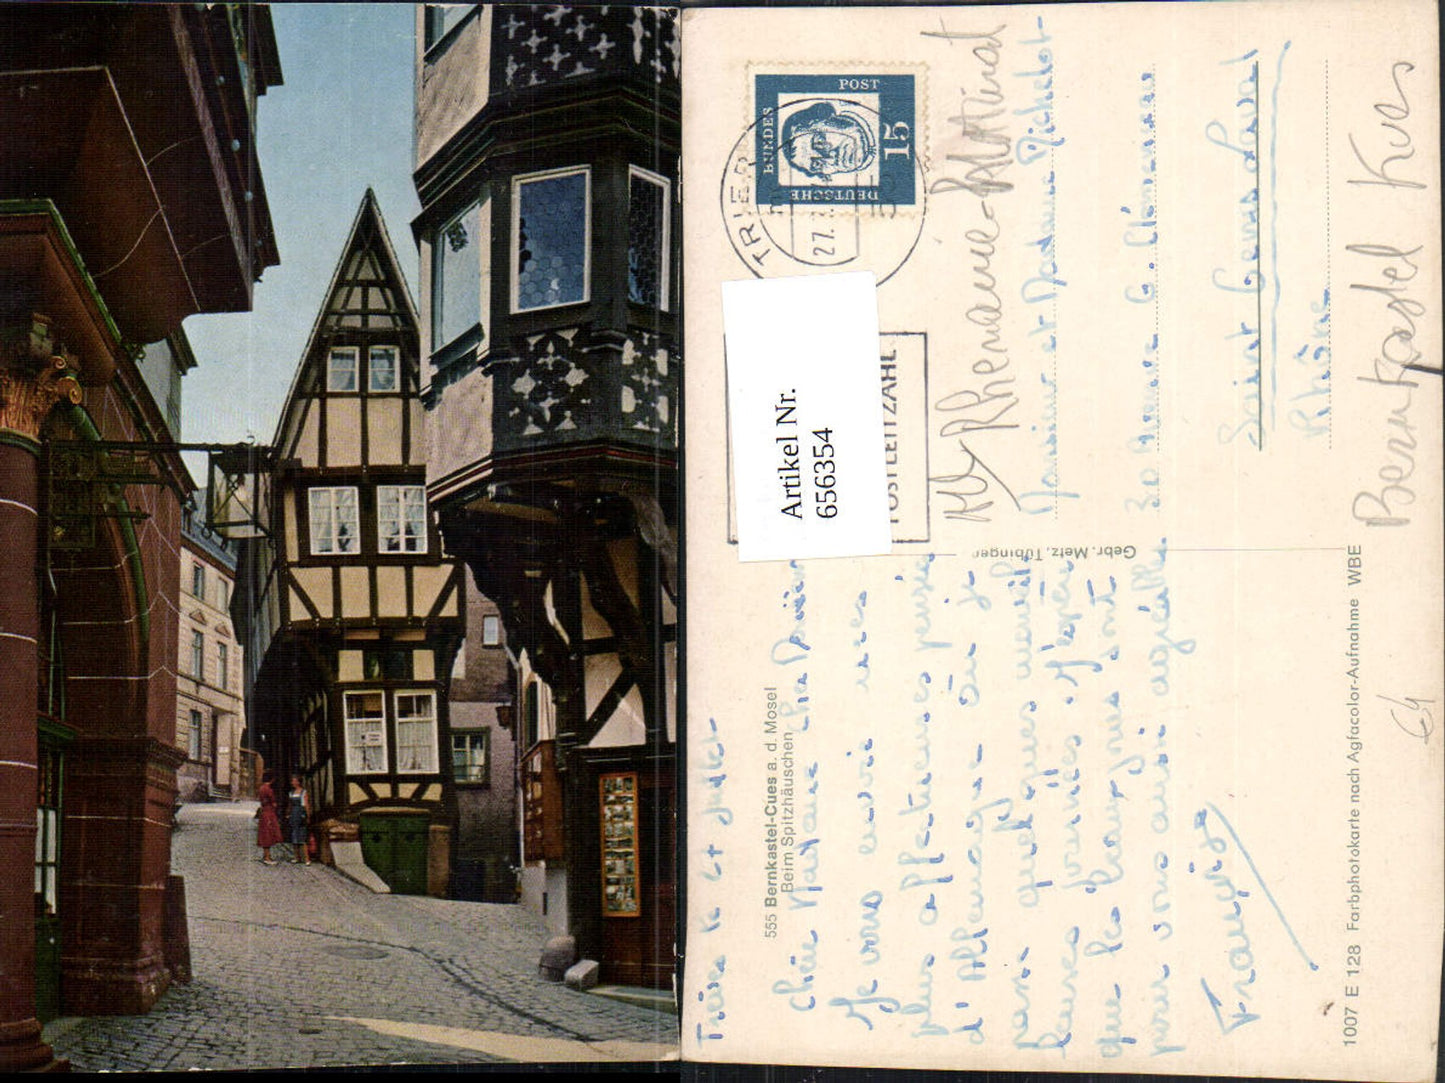 BUNDES
POST
DEUTSCHE
15
TRIER
27.
POSTLEITZAHL
Artikel Nr.
656354
All Rhénanie-Palatinat
Monsieur et Madame Michelot
30 Avenue G. Clémenceau
Saint Genis Laval
Rhône
Bernkastel Kues
555 Bernkastel-Cues a. d. Mosel
Beim Spitzhäuschen
Gebr. Metz, Tübingen
Trèves le 27 juillet
Chère Madame
Je vous envie mes
plus affectueuses pensées
d'Allemagne où je
passe quelques
bonnes journées. J'espère
que les vacances sont
pour vous aussi agréables
Françoise
1007 E 128 Farbphotokarte nach Agfacolor-Aufnahme WBE